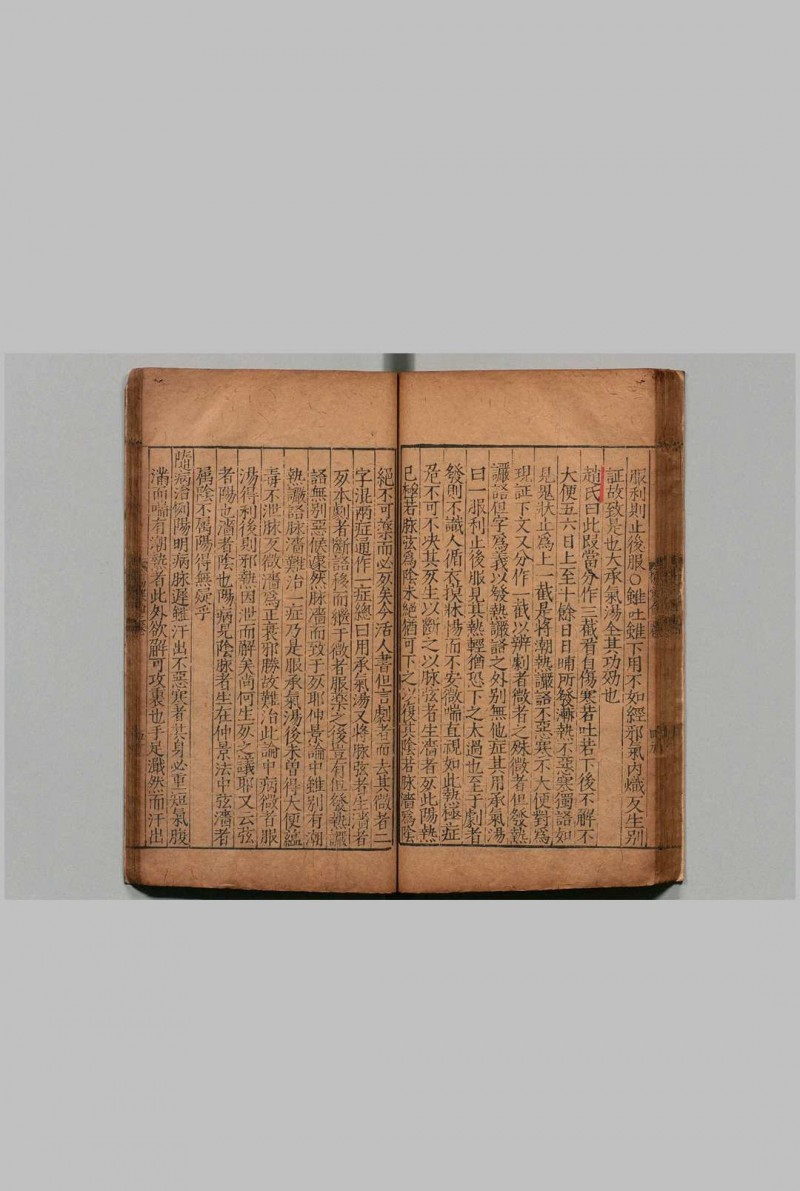 服利則止後服〇雖吐雖下用不如經邪氣內熾反生別
証故致是也大承氣湯全其功効也
趙氏曰此叚當分作三截看自傷寒若吐若下後不解不
大便五六日上至十餘日日晡所發潮熱不惡寒獨語如
見鬼狀止爲上一截是將潮熱讝語不惡寒不大便對爲
現証下文又分作一截以辨劇者微者之殊微者但發熱
讝語但字爲義以發熱讝語之外别無他症其用承氣湯
曰一服利止後服見其熱輕猶恐下之太過也至于劇者
發則不識人循衣摸床惕而不安微喘直視如此熱極症
危不可不决其死生以斷之以脉弦者生濇者死此陽熱
已極若脉弦爲陰未絕猶可下之以復其陰若脉濇爲陰
絕不可藥而必死矣今活人書但言劇者而去其微者二
字混两症通作一症總曰用承氣湯又將脉弦者生濇者
死本劇者斷語移而繼于微者服藥之後豈有但發熱讝
語無别惡候遽然脉濇而致于死耶仲景論中雖别有潮
熱讝語脉濇難治一症乃是服承氣湯後未曾得大便藴
毒不泄脉反微濇爲正衰邪勝故難治此論中病微者服
湯得利後則邪熱因泄而解矣尚何生死之議耶又云弦
者陽也濇者陰也陽病見陰脉者生在仲景法中弦濇者
属陰不属陽得無疑乎
陽病治例陽明病脉遲雖汗出不惡寒者其身必重短氣腹
滿而喘有潮熱者此外欲解可攻裏也手足濈然而汗出